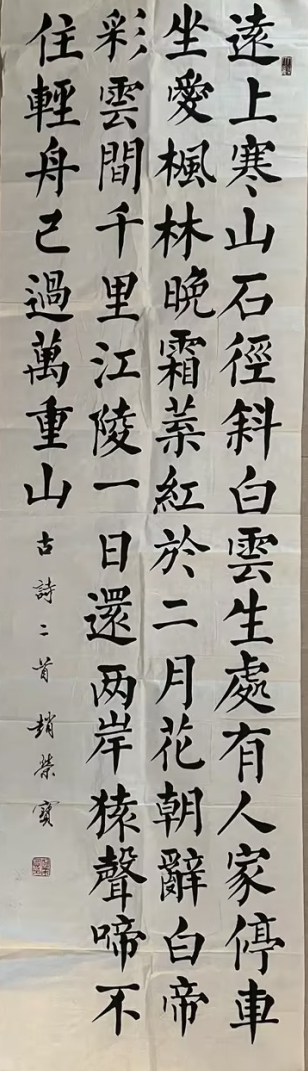 遠上寒山石徑斜白雲生處有人家停車
坐愛楓林晚霜葉紅於二月花朝辭白帝
彩雲間千里江陵一日還两岸猿聲啼不
住輕舟已過萬重山
古詩二首 趙榮寶